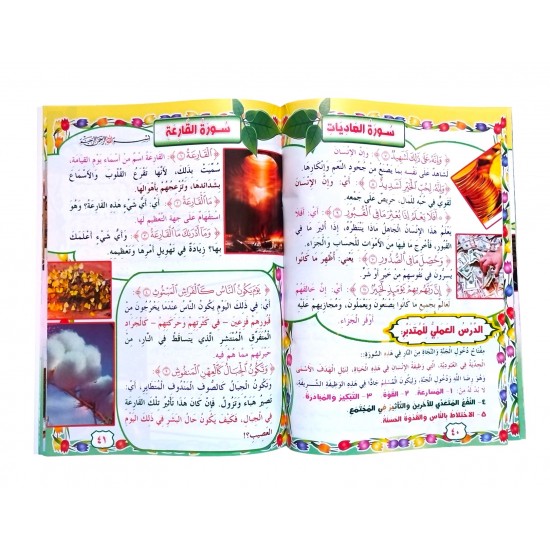 سُورَةُ العَادِيَاتِ
﴿وَإِنَّهُ عَلَىٰ ذَٰلِكَ لَشَهِيدٌ﴾ أي: وَإِنَّ الإِنْسَانَ
لشاهد على نفسه بما يصنع من جحود النعم وإنكارها.
﴿وَإِنَّهُ لِحُبِّ الْخَيْرِ لَشَدِيدٌ﴾ أي: وَإِنَّ الإِنْسَانَ
لقوي في حبه للمال، حريص على جمعه.
﴿أَفَلَا يَعْلَمُ إِذَا بُعْثِرَ مَا فِي الْقُبُورِ﴾ أي: أفلا
يعلم هذا الإنسان الجاهل ماذا ينتظره، إذا أثير ما في
القبور، فأخرج ما فيها من الأموات للحساب والجزاء.
﴿وَحُصِّلَ مَا فِي الصُّدُورِ﴾ يعني: أظهر ما كانوا
يسرون في نفوسهم من خير أو شر.
﴿إِنَّ رَبَّهُم بِهِمْ يَوْمَئِذٍ لَّخَبِيرٌ﴾ أي: إن خالقهم
لعالم بجميع ما كانوا يصنعون ويعملون، ومجازيهم عليه
أوفر الجزاء.
الدَّرْسُ العمليُّ للمتدبر:
مفتاح دخول الجنة والنجاة من النار في هذه السورة:
الجدية في العبادة
وهو رضا الله ودخول الجنة
١- المسارعة ٢- القوة ٣- التبكير والمبادرة
٤- النفع المتعدي للآخرين والتأثير في المجتمع
٥- الاختلاط بالناس والقدوة الحسنة
٤٠
سُورَةُ القَارِعَة
﴿الْقَارِعَةُ﴾ القارعة اسم من أسماء يوم القيامة،
سميت بذلك، لأنها تقرع القلوب والأسماع
بشدائدها، وتزعجهم بأهوالها.
﴿مَا الْقَارِعَةُ﴾ أي: أي شيء هذه القارعة؟ وهو
استفهام على جهة التعظيم لها
﴿وَمَا أَدْرَاكَ مَا الْقَارِعَةُ﴾ وأي شيء أعلمك
بها؟ زيادة في تهويل أمرها وتعظيمه.
﴿يَوْمَ يَكُونُ النَّاسُ كَالْفَرَاشِ الْمَبْثُوثِ﴾
أي: في ذلك اليوم يكون الناس عندما يخرجون من
قبورهم فزعين - في كثرتهم وحركتهم - كالجراد
المتفرق المنتشر الذي يتساقط في النار، من
حيرتهم مما هم فيه.
﴿وَتَكُونُ الْجِبَالُ كَالْعِهْنِ الْمَنفُوشِ﴾
وتكون الجبال كالصوف المندوف المتطاير، أي:
تصير هباء وتزول. فإن كان هذا تأثير تلك القارعة
في الجبال، فكيف يكون حال البشر في ذلك اليوم
العصيب؟!
٤١